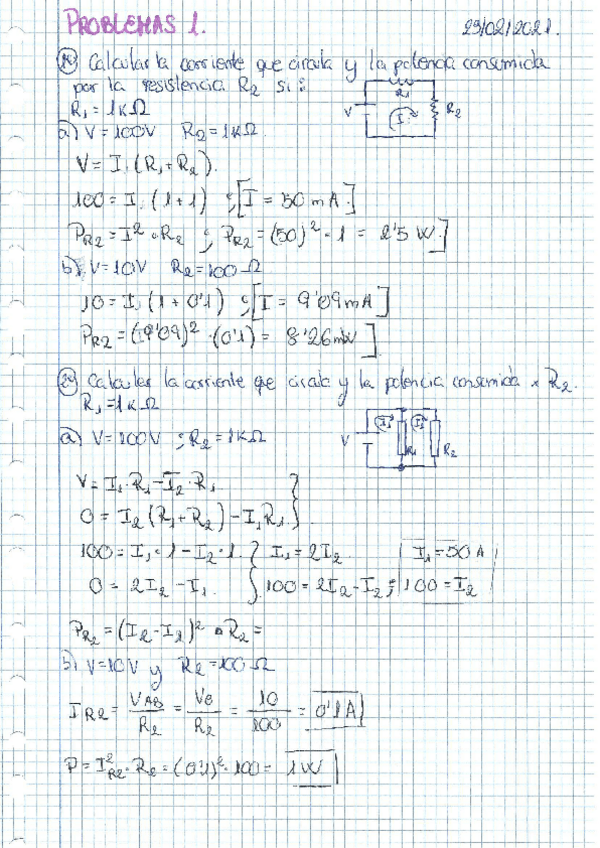 PROBLEMAS 1. 23/02/2021.
1º Calcular la corriente que circula y la potencia consumida
por la resistencia R2 si:
R1 = 1KΩ
V I R1 R2
a) V=100V R2=1KΩ.
V = I · (R1+R2).
100 = I · (1+1) ; [I = 50 mA.]
PR2 = I² · R2 ; PR2 = (50)² · 1 = 2'5 W.]
b) V=10V R2=100Ω
10 = I · (1 + 0'1) ; [I = 9'09mA]
PR2 = (9'09)² · (0'1) = 8'26mW].
2º Calcular la corriente que circula y la potencia consumida x R2.
R1 = 1KΩ
V I1 R1 I2 R2
a) V=100V ; R2=1KΩ
V = I1·R1 - I2·R1
0 = I2(R1+R2) - I1R1 }
100 = I1·1 - I2·1. } I1=2I2 I1=50A
0 = 2I2 - I1. } 100=2I2-I2 ; 100=I2
PR2 = (I2-I1)² · R2 =
b) V=10V y R2=100Ω
IR2 = VAB/R2 = VB/R2 = 10/100 = 0'1A
P = I²R2 · R2 = (0'1)² · 100 = 1W